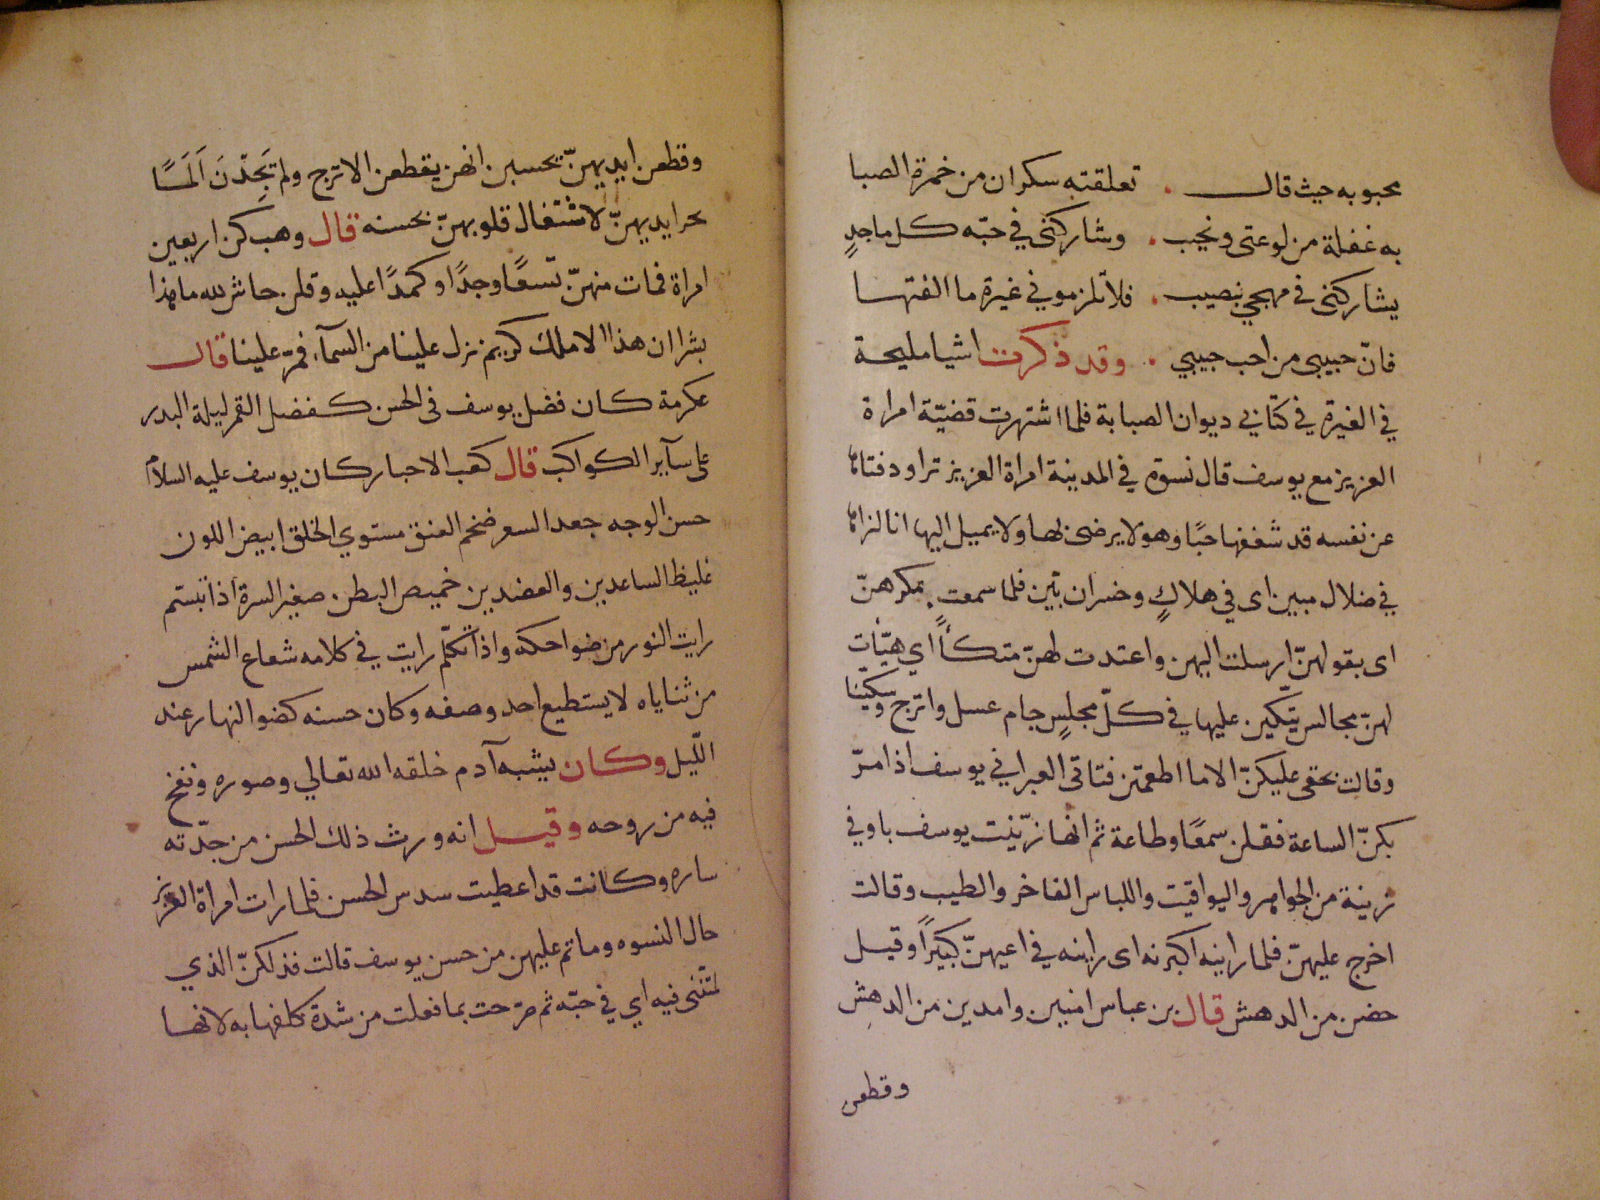 محبوبه حيث قال . تعلقته سكران من خمرة الصبا
به غفلة من لوعتى ونحيب . وشاركنى في حبّه كل ماجدٍ
يشاركنى في مهجتي بنصيب . فلا تلزموني غيرة ما الفتها
فانّ حبيبى من احب حبيبي . وقد ذكرت اشيا مليحة
في الغيرة في كتابي ديوان الصبابة فلما اشتهرت قضيّة امراة
العزيز مع يوسف قال نسوة في المدينة امراة العزيز تراود فتاها
عن نفسه قد شغفها حبًا وهو لا يرضى لها ولا يميل اليها انا لنراها
في ضلال مبين اى في هلاكٍ وخسران بيّن فلما سمعت بمكرهنّ
اى بقولهنّ ارسلت اليهن واعتدت لهنّ متكأً اي هيّأت
لهنّ مجالس يتكين عليها في كلّ مجلسٍ جام عسل واترج وسكّينا
وقالت بحقى عليكنّ الا ما اطعمتن فتاتى العبراني يوسف اذا مرّ
بكنّ الساعة فقلن سمعًا وطاعة ثم انها زيّنت يوسف باوفي
زينة من الجواهر واليواقيت واللباس الفاخر والطيب وقالت
اخرج عليهنّ فلما راينه اكبرنه اى راينه في اعيهنّ كبيرًا وقيل
حضن من الدهش قال بن عباس امنين وامدين من الدهِش
وقطعن
وقطعن ايديهنّ يحسبن انهن يقطعن الاترج ولم تَجِدْنَ اَلَمسًا
بحز ايديهنّ لاشتغال قلوبهنّ بحسنه قال وهب كن اربعين
امراة فمات منهنّ تسعًا وجدًا وكمدًا عليه وقلن حاش لله ما هذا
بشرا ان هذا الا ملك كريم نزل علينا من السمآء فمرّ علينا قال
عكرمة كان فضل يوسف فى الحسن كفضل القمر ليلة البدر
على سآير الكواكب قال كعب الاحبار كان يوسف عليه السلام
حسن الوجه جعد السعر ضخم العنق مستوي الخلق ابيض اللون
غليظ الساعدين والعضدين خميص البطن صغير السرة اذا تبسّم
رايت النور من ضواحكه واذا تكلّم رايت في كلامه شعاع الشمس
من ثناياه لا يستطيع احد وصفه وكان حسنه كضوا النهار عند
اللّيل وكان يشبه آدم خلقه الله تعالي وصوره ونفخ
فيه من روحه وقيل انه ورث ذلك الحسن من جدّته
ساره وكانت قد اعطيت سدس الحسن فلما رات امراة العزيز
حال النسوه وما تم عليهن من حسن يوسف قالت فذلكنّ الذي
لمتّنى فيه اي في حبّه ثم صرّحت بما فعلت من شدة كلفها به لانها